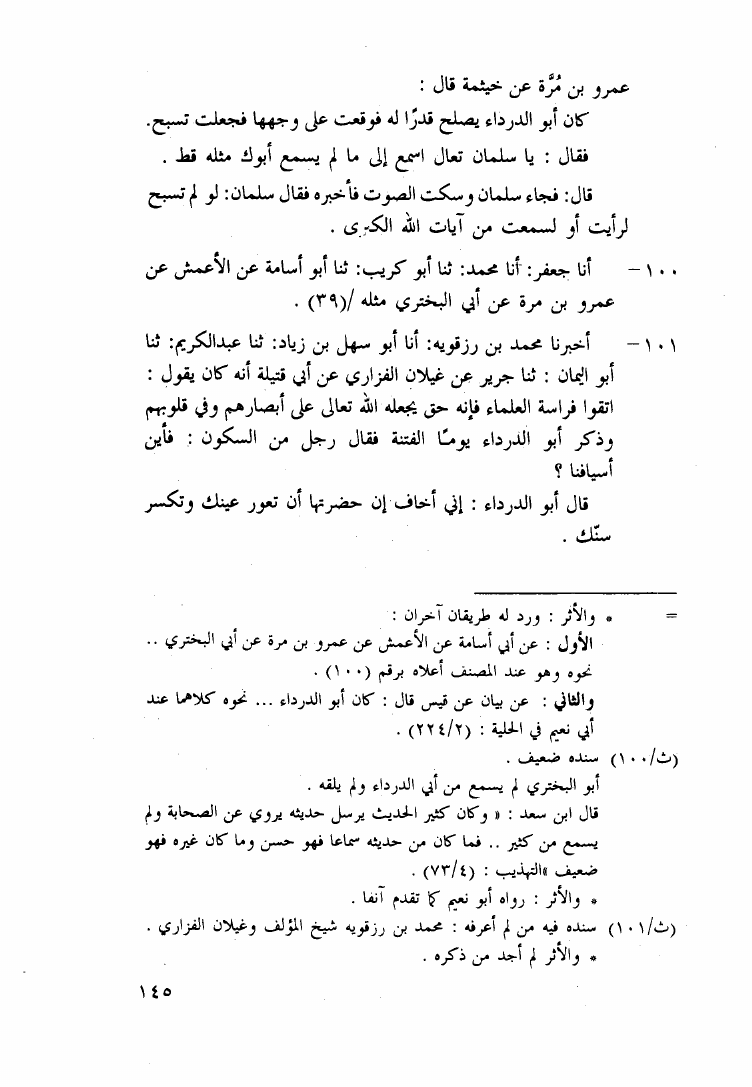 عمرو بن مُرَّة عن خيثمة قال :
كان أبو الدرداء يصلح قدرًا له فوقعت على وجهها فجعلت تسبح.
فقال : يا سلمان تعال اسمع إلى ما لم يسمع أبوك مثله قط .
قال: فجاء سلمان وسكت الصوت فأخبره فقال سلمان: لو لم تسبح
لرأيت أو لسمعت من آيات الله الكبرى .
١٠٠ – أنا جعفر: أنا محمد: ثنا أبو كريب: ثنا أبو أسامة عن الأعمش عن
عمرو بن مرة عن أبي البختري مثله /(٣٩) .
١٠١ – أخبرنا محمد بن رزقويه: أنا أبو سهل بن زياد: ثنا عبدالكريم: ثنا
أبو اليمان : ثنا جرير عن غيلان الفزاري عن أبي قتيلة أنه كان يقول :
اتقوا فراسة العلماء فإنه حق يجعله الله تعالى على أبصارهم وفي قلوبهم
وذكر أبو الدرداء يومًا الفتنة فقال رجل من السكون : فأين
أسيافنا ؟
قال أبو الدرداء : إني أخاف إن حضرتها أن تعور عينك وتكسر
سنّك .
= * والأثر : ورد له طريقان آخران :
الأول : عن أبي أسامة عن الأعمش عن عمرو بن مرة عن أبي البختري ..
نحوه وهو عند المصنف أعلاه برقم (١٠٠) .
والثاني : عن بيان عن قيس قال : كان أبو الدرداء ... نحوه كلاهما عند
أبي نعيم في الحلية : (٢٢٤/٢) .
(ث/١٠٠) سنده ضعيف .
أبو البختري لم يسمع من أبي الدرداء ولم يلقه .
قال ابن سعد : « وكان كثير الحديث يرسل حديثه يروي عن الصحابة ولم
يسمع من كثير .. فما كان من حديثه سماعا فهو حسن وما كان غيره فهو
ضعيف »التهذيب : (٧٣/٤) .
* والأثر : رواه أبو نعيم كما تقدم آنفا .
(ث/١٠١) سنده فيه من لم أعرفه : محمد بن رزقويه شيخ المؤلف وغيلان الفزاري .
* والأثر لم أجد من ذكره .
١٤٥